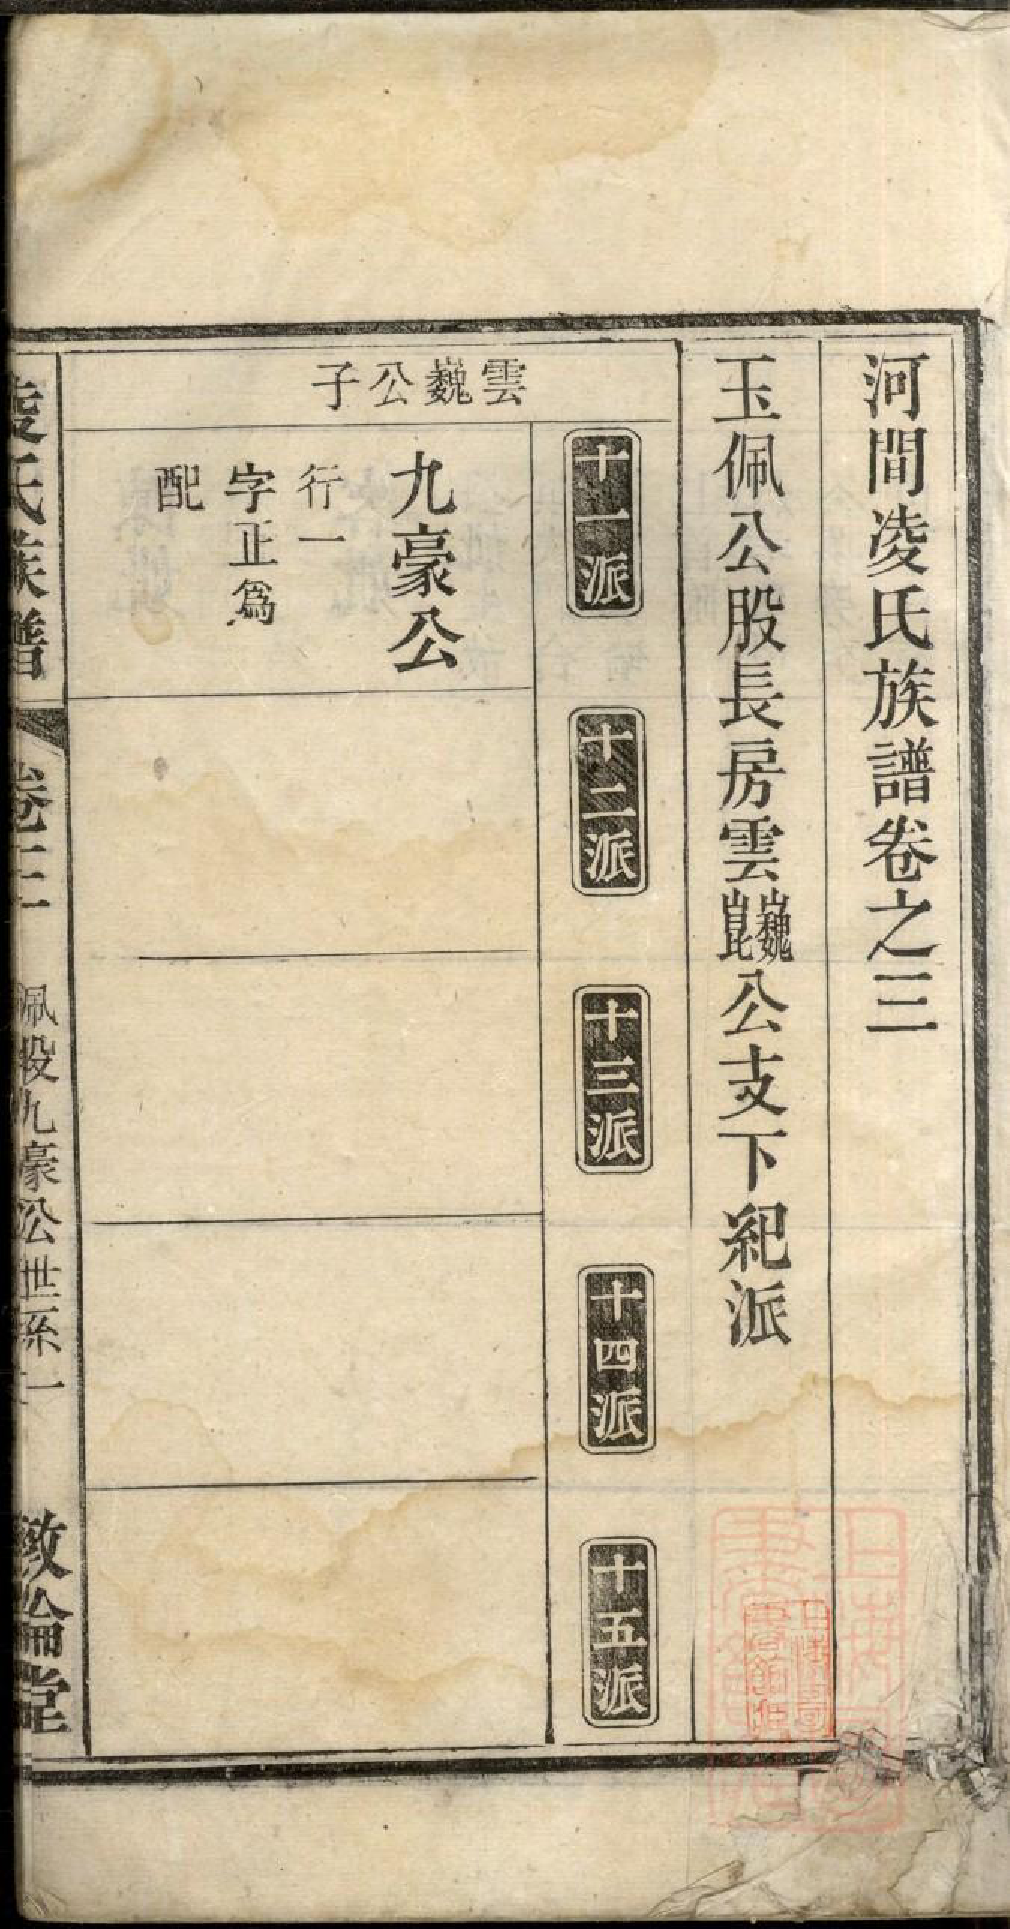 河間凌氏族譜卷之三
玉佩公股長房雲巍崑公支下紀派
十一派
十二派
十三派
十四派
十五派
雲巍公子
九豪公
行一
字正爲
配
凌氏族譜
卷三
佩股九豪公世系一
敦倫堂